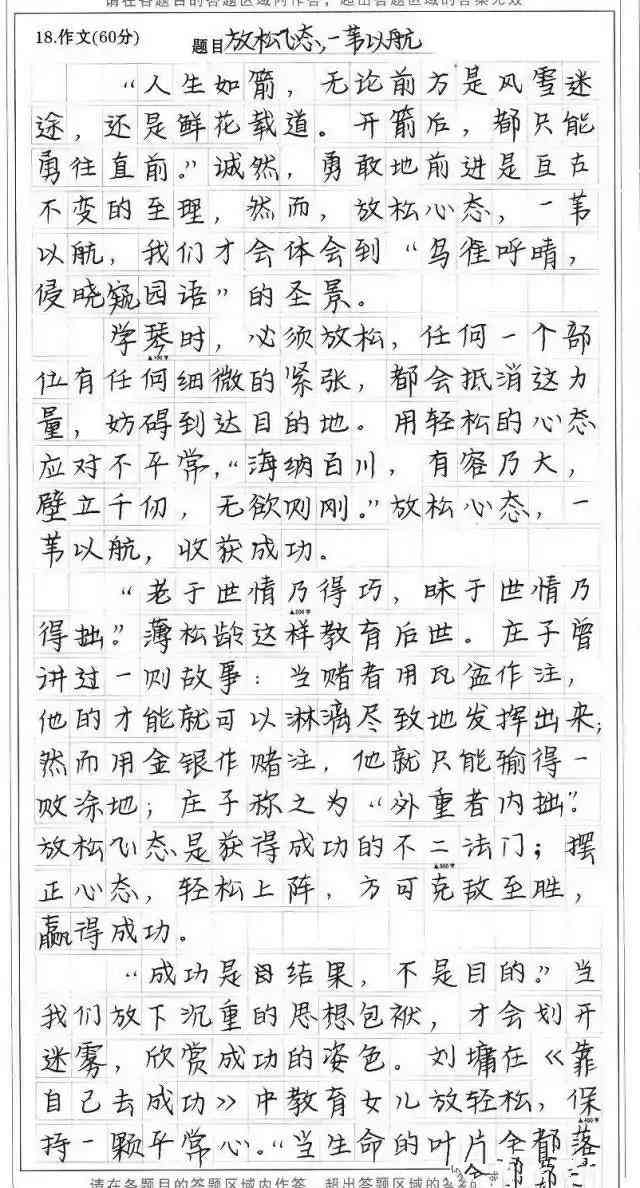 请在各题目的答题区域内作答，超出答题区域的答案无效
18.作文(60分) 题目 放松心态，一苇以航
“人生如箭，无论前方是风雪迷
途，还是鲜花载道。开箭后，都只能
勇往直前。”诚然，勇敢地前进是亘古
不变的至理，然而，放松心态，一苇
以航，我们才会体会到“鸟雀呼晴，
侵晓窥园语”的圣景。
学琴时，必须放松，任何一个部
位有任何细微的紧张，都会抵消这力
量，妨碍到达目的地。用轻松的心态
应对不平常，“海纳百川，有容乃大，
壁立千仞，无欲则刚。”放松心态，一
苇以航，收获成功。
“老于世情乃得巧，昧于世情乃
得拙。”薄松龄这样教育后世。庄子曾
讲过一则故事：当赌者用瓦盆作注，
他的才能就可以淋漓尽致地发挥出来；
然而用金银作赌注，他就只能输得一
败涂地；庄子称之为“外重者内拙”。
放松心态是获得成功的不二法门；摆
正心态，轻松上阵，方可克敌至胜，
赢得成功。
“成功是结果，不是目的。”当
我们放下沉重的思想包袱，才会划开
迷雾，欣赏成功的姿色。刘墉在《靠
自己去成功》中教育女儿放轻松，保
持一颗平常心。“当生命的叶片全都落
请在各题目的答题区域内作答，超出答题区域的